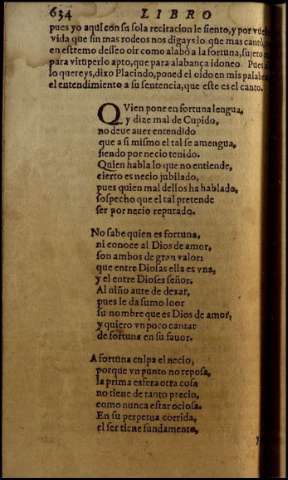 634 LIBRO
pues yo aqui con sa sola recitacion le siento, y por vue
vida que sin mas rodeos nos digays lo que mas canto,
en estremo desseo oir como alabò a la fortuna, sujeto
para vituperlo apto, que para alabança idoneo. Pues
lo quereys, dixo Placindo, poned el oido en mis palabr
el entendimiento a su sentencia, que este es el canto.
QVien pone en fortuna lengua,
y dize mal de Cupido,
no deue auer entendido
que a si mismo el tal se amengua,
siendo por necio tenido.
Quien habla lo que no entiende,
cierto es necio jubilado,
pues quien mal dellos ha hablado,
sospecho que el tal pretende
ser por necio reputado.
No sabe quien es fortuna,
ni conoce al Dios de amor,
son ambos de gran valor:
que entre Diosas ella es vna,
y el entre Dioses señor.
Al niño aure de dexar,
pues le da sumo loor
su nombre que es Dios de amor,
y quiero vn poco cantar
de fortuna en su fauor.
A fortuna culpa el necio,
porque vn punto no reposa,
la prima esfera otra cosa
no tiene de tanto precio,
como nunca estar ociosa.
En su perpetua corrida,
el ser tiene fundamento,